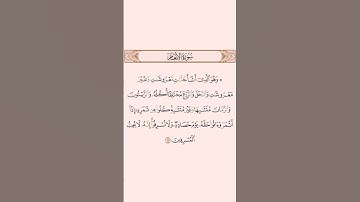 سُورَةُ الأَنْعَامِ
۞ وَهُوَ الَّذِي أَنشَأَ جَنَّاتٍ مَّعْرُوشَاتٍ وَغَيْرَ
مَعْرُوشَاتٍ وَالنَّخْلَ وَالزَّرْعَ مُخْتَلِفًا أُكُلُهُ وَالزَّيْتُونَ
وَالرُّمَّانَ مُتَشَابِهًا وَغَيْرَ مُتَشَابِهٍ كُلُوا مِن ثَمَرِهِ إِذَا
أَثْمَرَ وَآتُوا حَقَّهُ يَوْمَ حَصَادِهِ وَلَا تُسْرِفُوا إِنَّهُ لَا يُحِبُّ
الْمُسْرِفِينَ